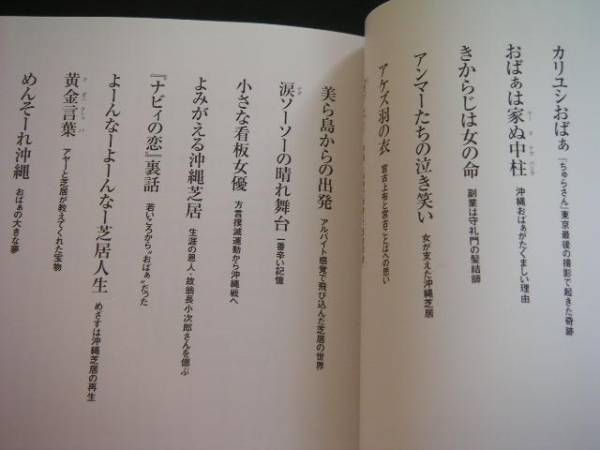 カリユシおばぁ 『ちゅらさん』東京最後の撮影で起きた奇跡
おばぁは家ぬ中柱 沖縄おばぁがたくましい理由
きからじは女の命 副業は守礼門の髪結師
アンマーたちの泣き笑い 女が支えた沖縄芝居
アケズ羽の衣 宮古上布と宮古ことばへの思い
美ら島からの出発 アルバイト感覚で飛び込んだ芝居の世界
涙ソーソーの晴れ舞台 一番辛い記憶
小さな看板女優 方言撲滅運動から沖縄戦へ
よみがえる沖縄芝居 生涯の恩人・故翁長小次郎さんを偲ぶ
『ナビィの恋』裏話 若いころから“おばぁ”だった
よーんなーよーんなー芝居人生 めざすは沖縄芝居の再生
黄金言葉 アヤーと芝居が教えてくれた宝物
めんそーれ沖縄 おばぁの大きな夢